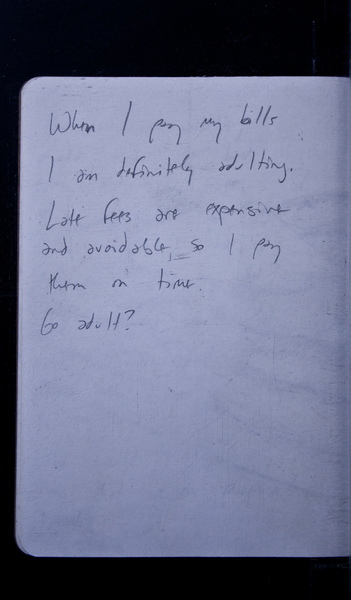 When I pay my bills
I am definitely adulting.
Late fees are expensive
and avoidable, so I pay
them on time.
Go adult?